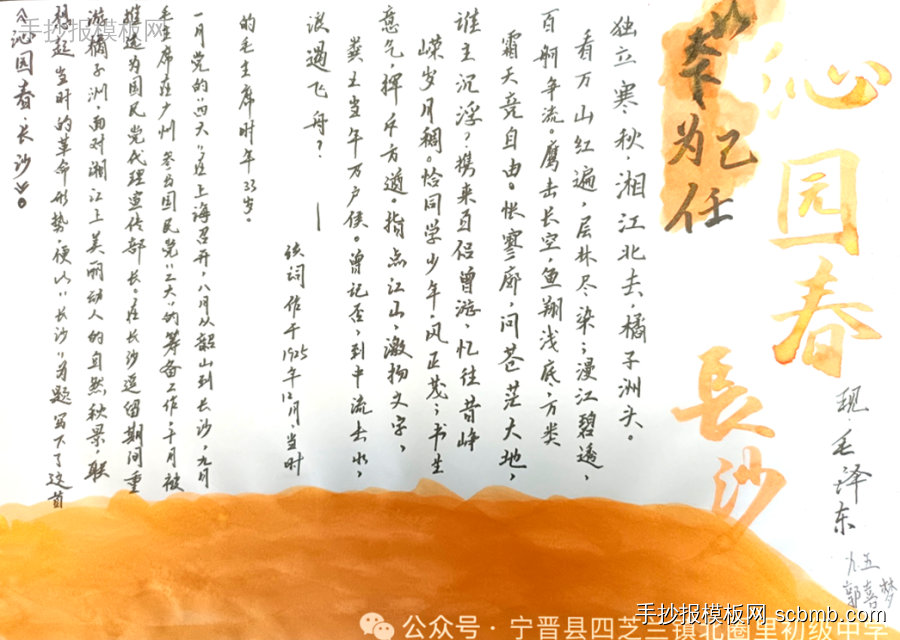 沁园春
長沙
现·毛泽东
九五
郭喜梦
以天下
为己
任
独立寒秋,湘江北去,橘子洲头。
看万山红遍,层林尽染;漫江碧透,
百舸争流。鹰击长空,鱼翔浅底,万类
霜天竞自由。怅寥廓,问苍茫大地,
谁主沉浮?携来百侣曾游,忆往昔峥
嵘岁月稠。恰同学少年,风正茂;书生
意气,挥斥方遒。指点江山,激扬文字,
粪土当年万户侯。曾记否,到中流击水,
浪遏飞舟?——
该词作于1925年12月,当时
的毛主席时年33岁。
一月党的“四大”在上海召开,八月从韶山到长沙,九月
毛主席在广州参与国民党“二大”的筹备工作,十月被
推选为国民党代理宣传部长。在长沙逗留期间重
游橘子洲,面对湘江上美丽动人的自然秋景,联
想起当时的革命形势,便以“长沙”为题写下了这首
《沁园春·长沙》。
手抄报模板网
公众号·宁晋县四芝兰镇北圈里初级中学
手抄报模板网 scbmb.com